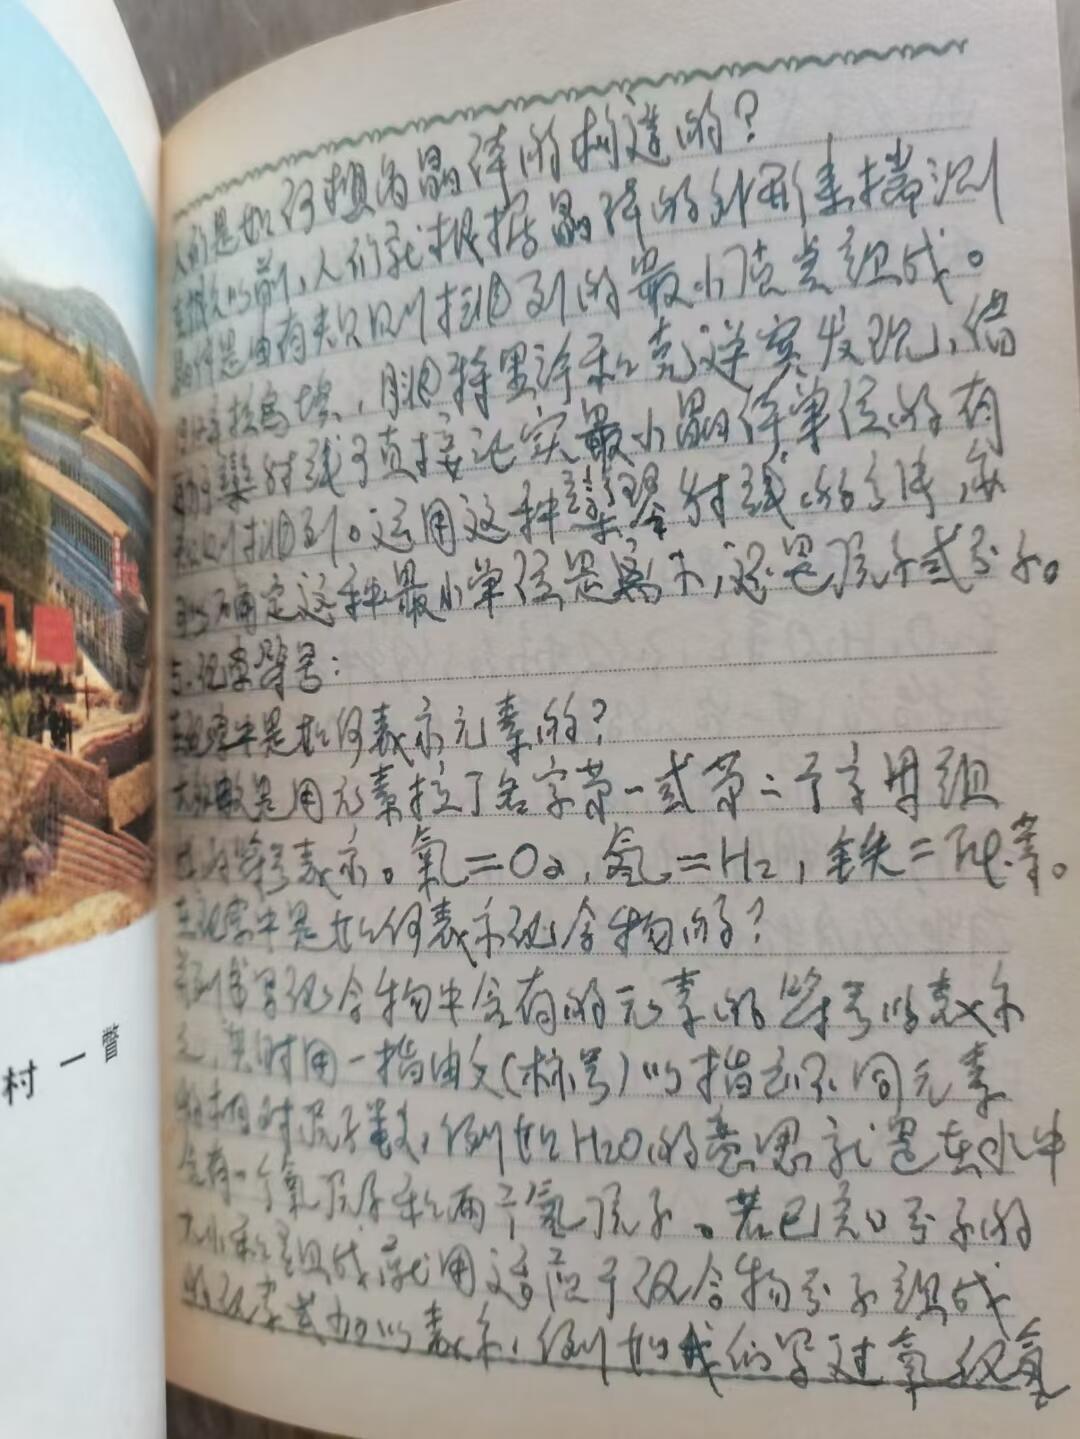 人们是如何想为晶体的构造的？
在很久以前，人们就根据晶体的外形来揣测
晶体是由有规则排列的最小质点组成。
，用特里许和克逆宾发现，借
助于 射线可直接证实最小晶体单位的有
规则排列。运用这种 射线的方法，亦
可以确定这种最小单位是离子，还是原子或分子。
五、化学符号：
在化学中是如何表示元素的？
大多数是用元素拉丁名字第一或第二个字母组
成的符号表示。氧＝O2，氢＝H2，铁＝Fe等。
在化学中是如何表示化合物的？
并列书写化合物中含有的元素的符号以表示
之，其时用一指 （标号）以指示不同元素
的相对原子数，例如H2O，的意思就是在水中
含有一个氧原子和两个氢原子。若已知分子的
大小和组成，就用适应于该合物分子组成
的化学式加以表示，例如我们写过氧化氢
村一瞥